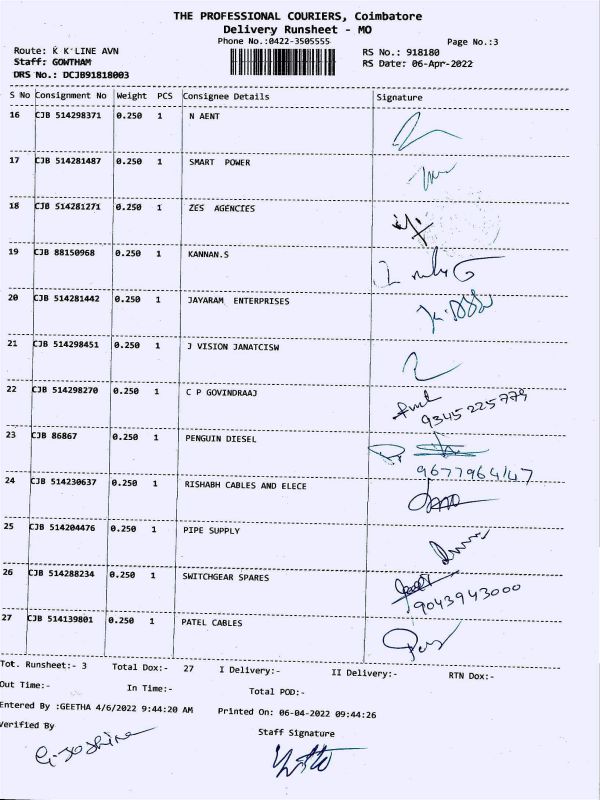 THE PROFESSIONAL COURIERS, Coimbatore
Delivery Runsheet - MO
Phone No.:0422-3505555 Page No.:3
Route: K K LINE AVN RS No.: 918180
Staff: GOWTHAM RS Date: 06-Apr-2022
DRS No.: DCJB91818003
S No Consignment No Weight PCS Consignee Details Signature
16 CJB 514298371 0.250 1 N AENT
17 CJB 514281487 0.250 1 SMART POWER
18 CJB 514281271 0.250 1 ZES AGENCIES
19 CJB 88150968 0.250 1 KANNAN.S
20 CJB 514281442 0.250 1 JAYARAM ENTERPRISES
21 CJB 514298451 0.250 1 J VISION JANATCISW
22 CJB 514298270 0.250 1 C P GOVINDRAAJ
9345225779
23 CJB 86867 0.250 1 PENGUIN DIESEL
9677964147
24 CJB 514230637 0.250 1 RISHABH CABLES AND ELECE
25 CJB 514204476 0.250 1 PIPE SUPPLY
26 CJB 514288234 0.250 1 SWITCHGEAR SPARES
9043943000
27 CJB 514139801 0.250 1 PATEL CABLES
Tot. Runsheet:- 3 Total Dox:- 27 I Delivery:- II Delivery:- RTN Dox:-
Out Time:- In Time:- Total POD:-
Entered By :GEETHA 4/6/2022 9:44:20 AM Printed On: 06-04-2022 09:44:26
Verified By Staff Signature